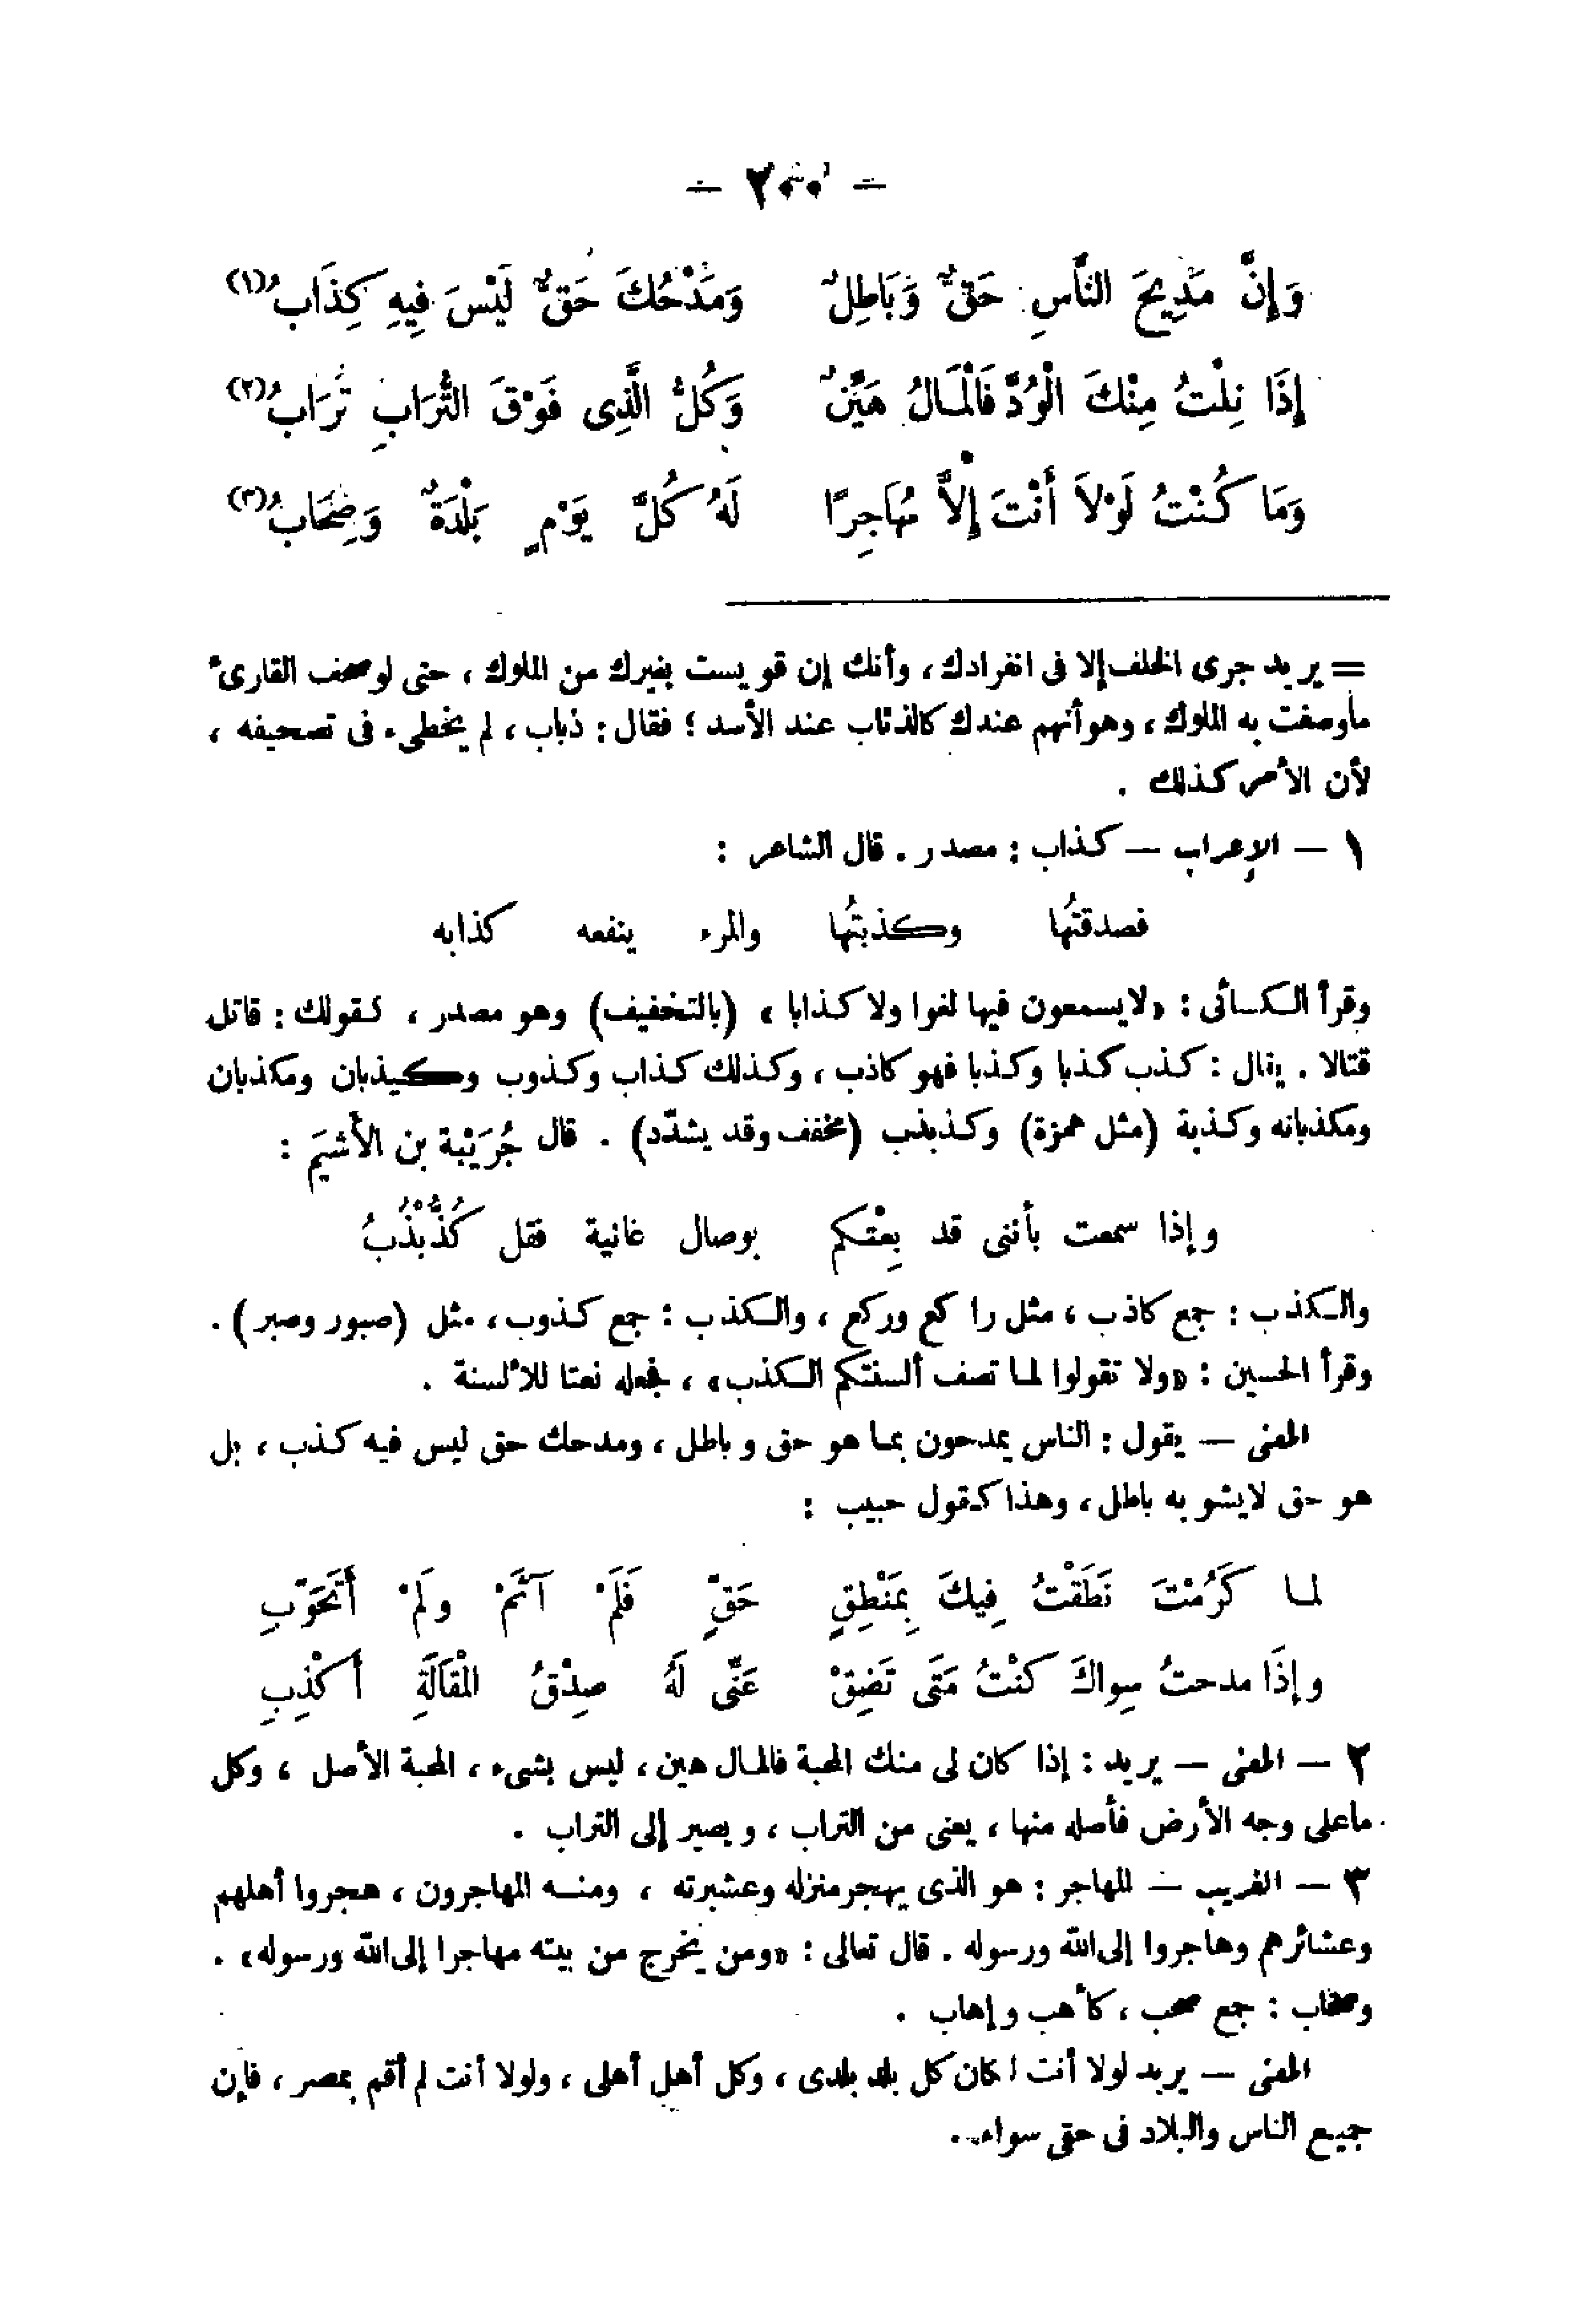 — ٢٠٠ —
وَإِنَّ مَدِيحَ النَّاسِ حَقٌّ وَبَاطِلٌ وَمَدْحُكَ حَقٌّ لَيْسَ فِيهِ كِذَابُ(١)
إِذَا نِلْتُ مِنْكَ الْوُدَّ فَالْمَالُ هَيِّنٌ وَكُلُّ الَّذِى فَوْقَ التُّرَابِ تُرَابُ(٢)
وَمَا كُنْتُ لَوْلاَ أَنْتَ إِلاَّ مُهَاجِرًا لَهُ كُلَّ يَوْمٍ بَلْدَةٌ وَصِحَابُ(٣)
= يريد جرى الخلف إلا فى انفرادك ، وأنك إن قويست بغيرك من الملوك ، حتى لو صحف القارئ
ما وصفت به الملوك ، وهو أنهم عندك كالذئاب عند الأسد ؛ فقال : ذباب ، لم يخطىء فى تصحيفه ،
لأن الأمر كذلك .
١ — الإعراب — كذاب : مصدر . قال الشاعر :
فصدقتُها وكذبتُها والمرء ينفعه كذابه
وقرأ الكسائى : «لا يسمعون فيها لغوا ولا كذابا » (بالتخفيف) وهو مصدر ، كقولك : قاتل
قتالا . يقال : كذب كذبا وكذبا فهو كاذب ، وكذلك كذاب وكذوب وكيذبان ومكذبان
ومكذبانه وكذبة (مثل همزة) وكذبذب (مخفف وقد يشدّد) . قال جُرَيْبة بن الأشيَم :
وإذا سمعت بأننى قد بِعْتكم بوصال غانية فقل كُذُّبْذُبُ
والكذب : جمع كاذب ، مثل راكع وركع ، والكذب : جمع كذوب ، مثل (صبور وصبر) .
وقرأ الحسين : «ولا تقولوا لما تصف ألسنتكم الكذب» ، فجعله نعتا للألسنة .
المعنى — يقول : الناس يمدحون بما هو حق وباطل ، ومدحك حق ليس فيه كذب ، بل
هو حق لا يشوبه باطل ، وهذا كقول حبيب :
لما كَرُمْتَ نَطَقْتُ فِيكَ بِمَنْطِقٍ حَقٍّ فَلَمْ آثَمْ ولَمْ أَتَحَوَّبِ
وإِذَا مدحتُ سِواكَ كنْتُ مَتَى تَضِقْ عَنِّى لَهُ صِدْقُ الْمَقَالَةِ أكْذِبِ
٢ — المعنى — يريد : إذا كان لى منك المحبة فالمال هين ، ليس بشىء ، المحبة الأصل ، وكل
ما على وجه الأرض فأصله منها ، يعنى من التراب ، ويصير إلى التراب .
٣ — الغريب — المهاجر : هو الذى يهجر منزله وعشيرته ، ومنه المهاجرون ، هجروا أهلهم
وعشائرهم وهاجروا إلى الله ورسوله . قال تعالى : «ومن يخرج من بيته مهاجرا إلى الله ورسوله» .
وصحاب : جمع صحب ، كأهب وإهاب .
المعنى — يريد لولا أنت لكان كل بلد بلدى ، وكل أهل أهلى ، ولولا أنت لم أقم بمصر ، فإن
جميع الناس والبلاد فى حقى سواء .